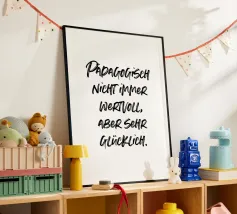 PÄDAGOGISCH
NICHT IMMER
WERTVOLL,
ABER SEHR
GLÜCKLICH.